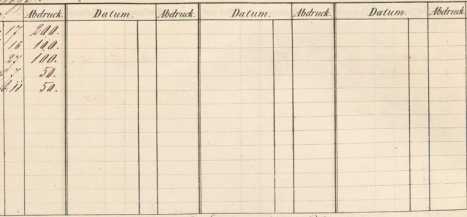 Abdruck. Datum. Abdruck. Datum. Abdruck. Datum. Abdruck.
17 200.
16 100.
27 100.
7 50.
11 50.